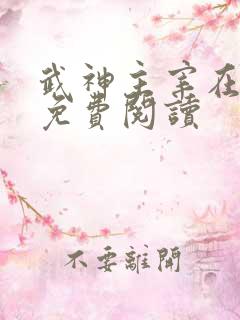 武神主宰在
免費閱讀
不要離開